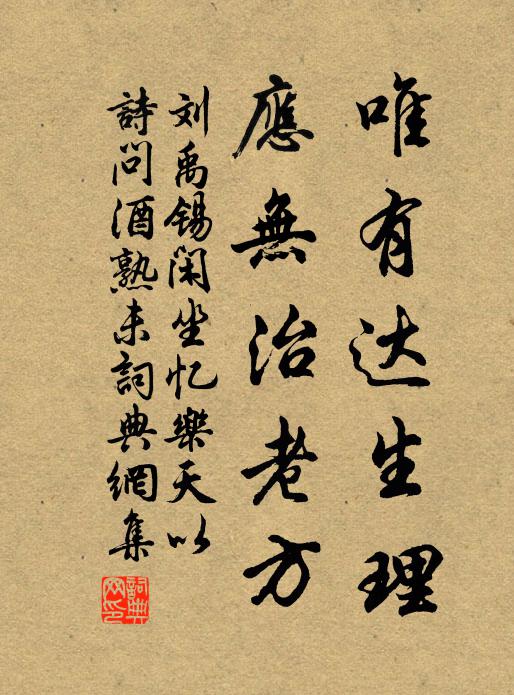 唯有达生理
應無治老方
刘禹锡闲坐忆樂天以
詩问酒熟未詞典網集
詞典网印